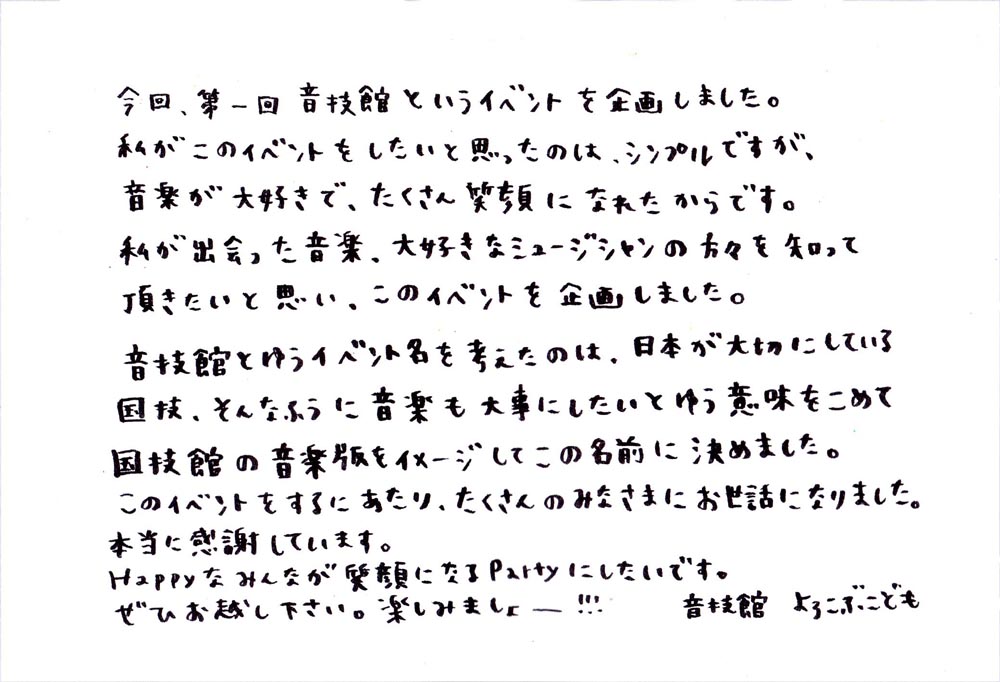 今回、第一回 音技館というイベントを企画しました。
私がこのイベントをしたいと思ったのは、シンプルですが、
音楽が大好きで、たくさん笑顔になれたからです。
私が出会った音楽、大好きなミュージシャンの方々を知って
頂きたいと思い、このイベントを企画しました。
音技館とゆうイベント名を考えたのは、日本が大切にしている
国技、そんなふうに音楽も大事にしたいとゆう意味をこめて
国技館の音楽版をイメージしてこの名前に決めました。
このイベントをするにあたり、たくさんのみなさまにお世話になりました。
本当に感謝しています。
Happyなみんなが笑顔になるPartyにしたいです。
ぜひお越し下さい。楽しみましょー!!! 音技館 よろこぶこども